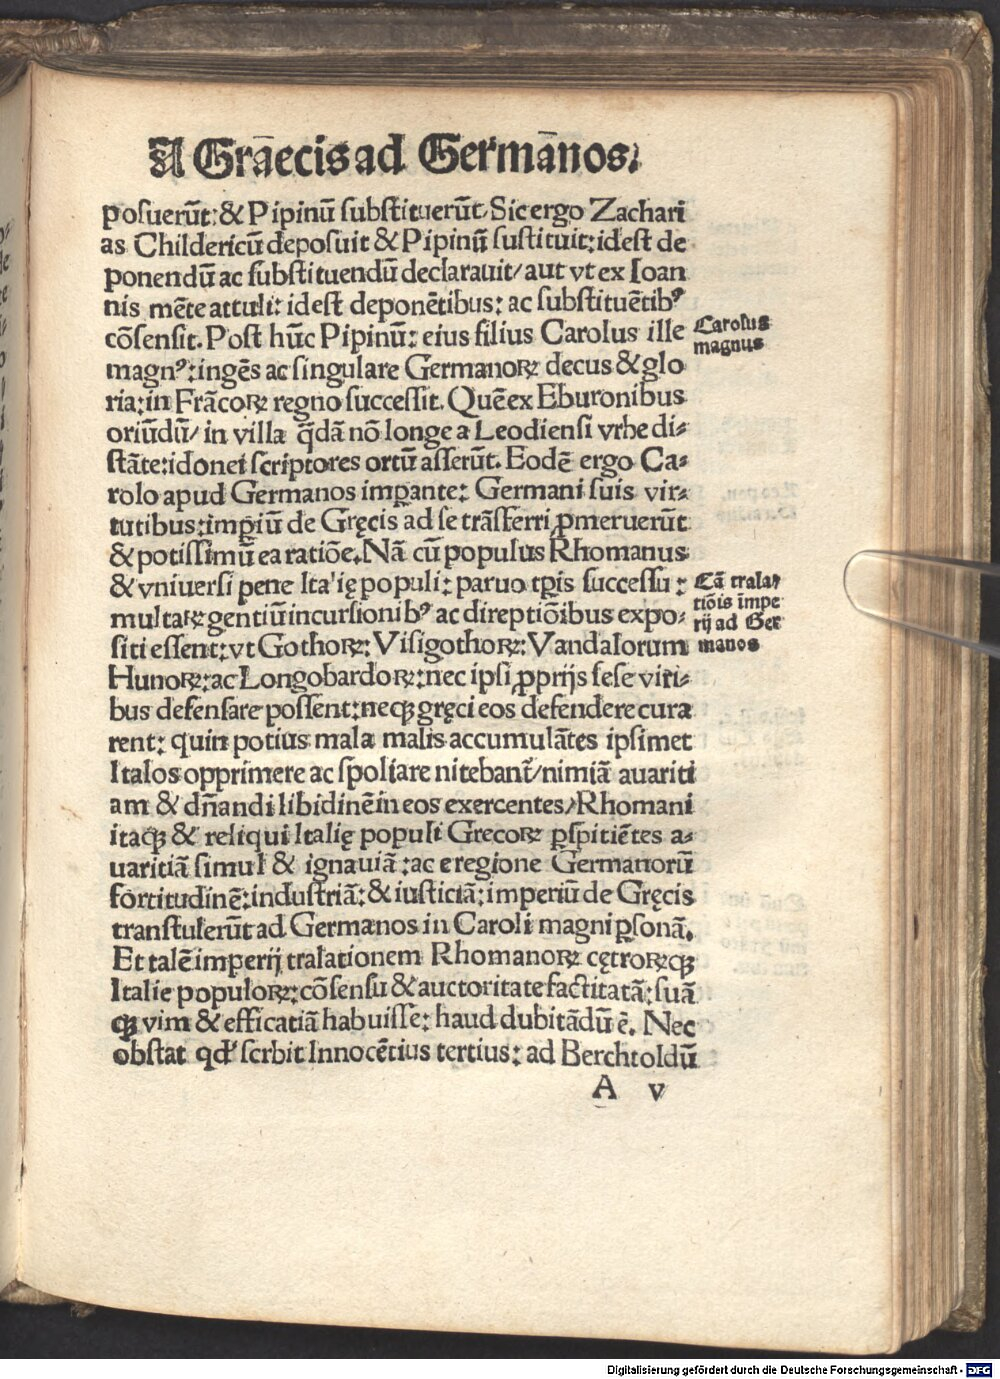 A Graēcis ad Germānos.
posuerūt: & Pipinū substituerūt. Sic ergo Zachari
as Childericū deposuit & Pipinū sustituit: idest de
ponendū ac substituendū declarauit/ aut vt ex Ioan
nis mēte attuli: idest deponētibus: ac substituētibꝰ
cōsensit. Post hūc Pipinū: eius filius Carolus ille
magnꝰ: ingēs ac singulare Germanoꝝ decus & glo
ria: in Frācoꝝ regno successit. Quē ex Eburonibus
oriūdū/ in villa q̄dā nō longe a Leodiensi vrbe di⸗
stāte: idonei scriptores ortū asserūt. Eodē ergo Ca⸗
rolo apud Germanos imꝑante: Germani suis vir⸗
tutibus: imꝑiū de Gręcis ad se trāsferri ꝓmeruerūt
& potissimū ea ratiōe. Nā cū populus Rhomanus
& vniuersi pene Italię populi: paruo tꝑis successu:
multaꝝ gentiū incursionibꝰ ac direptiōibus expo⸗
siti essent: vt Gothoꝝ: Visigothoꝝ: Vandalorum
Hunoꝝ: ac Longobardoꝝ: nec ipsi ꝓprijs sese viri⸗
bus defensare possent: neqꝫ gręci eos defendere cura
rent: quin potius mala malis accumulātes ipsimet
Italos opprimere ac spoliare nitebant̄/ nimiā auariti
am & dn̄andi libidinē in eos exercentes/ Rhomani
itaqꝫ & reliqui Italię populi Grecoꝝ ꝑspitiētes a⸗
uaritiā simul & ignauiā: ac e regione Germanorū
fortitudinē: industriā: & iusticiā: imperiū de Gręcis
transtulerūt ad Germanos in Caroli magni ꝑsonā.
Et talē imperij tralationem Rhomanoꝝ cętroꝝqꝫ
Italie populoꝝ: cōsensu & auctoritate factitatā: suā
qꝫ vim & efficatiā habuisse: haud dubitādū ē. Nec
obstat qd' scrbit Innocētius tertius: ad Berchtoldū
A v
Carolus
magnus
Cā trala⸗
tiōis īmpe
rij ad Ger
manos
Digitalisierung gefördert durch die Deutsche Forschungsgemeinschaft - DFG